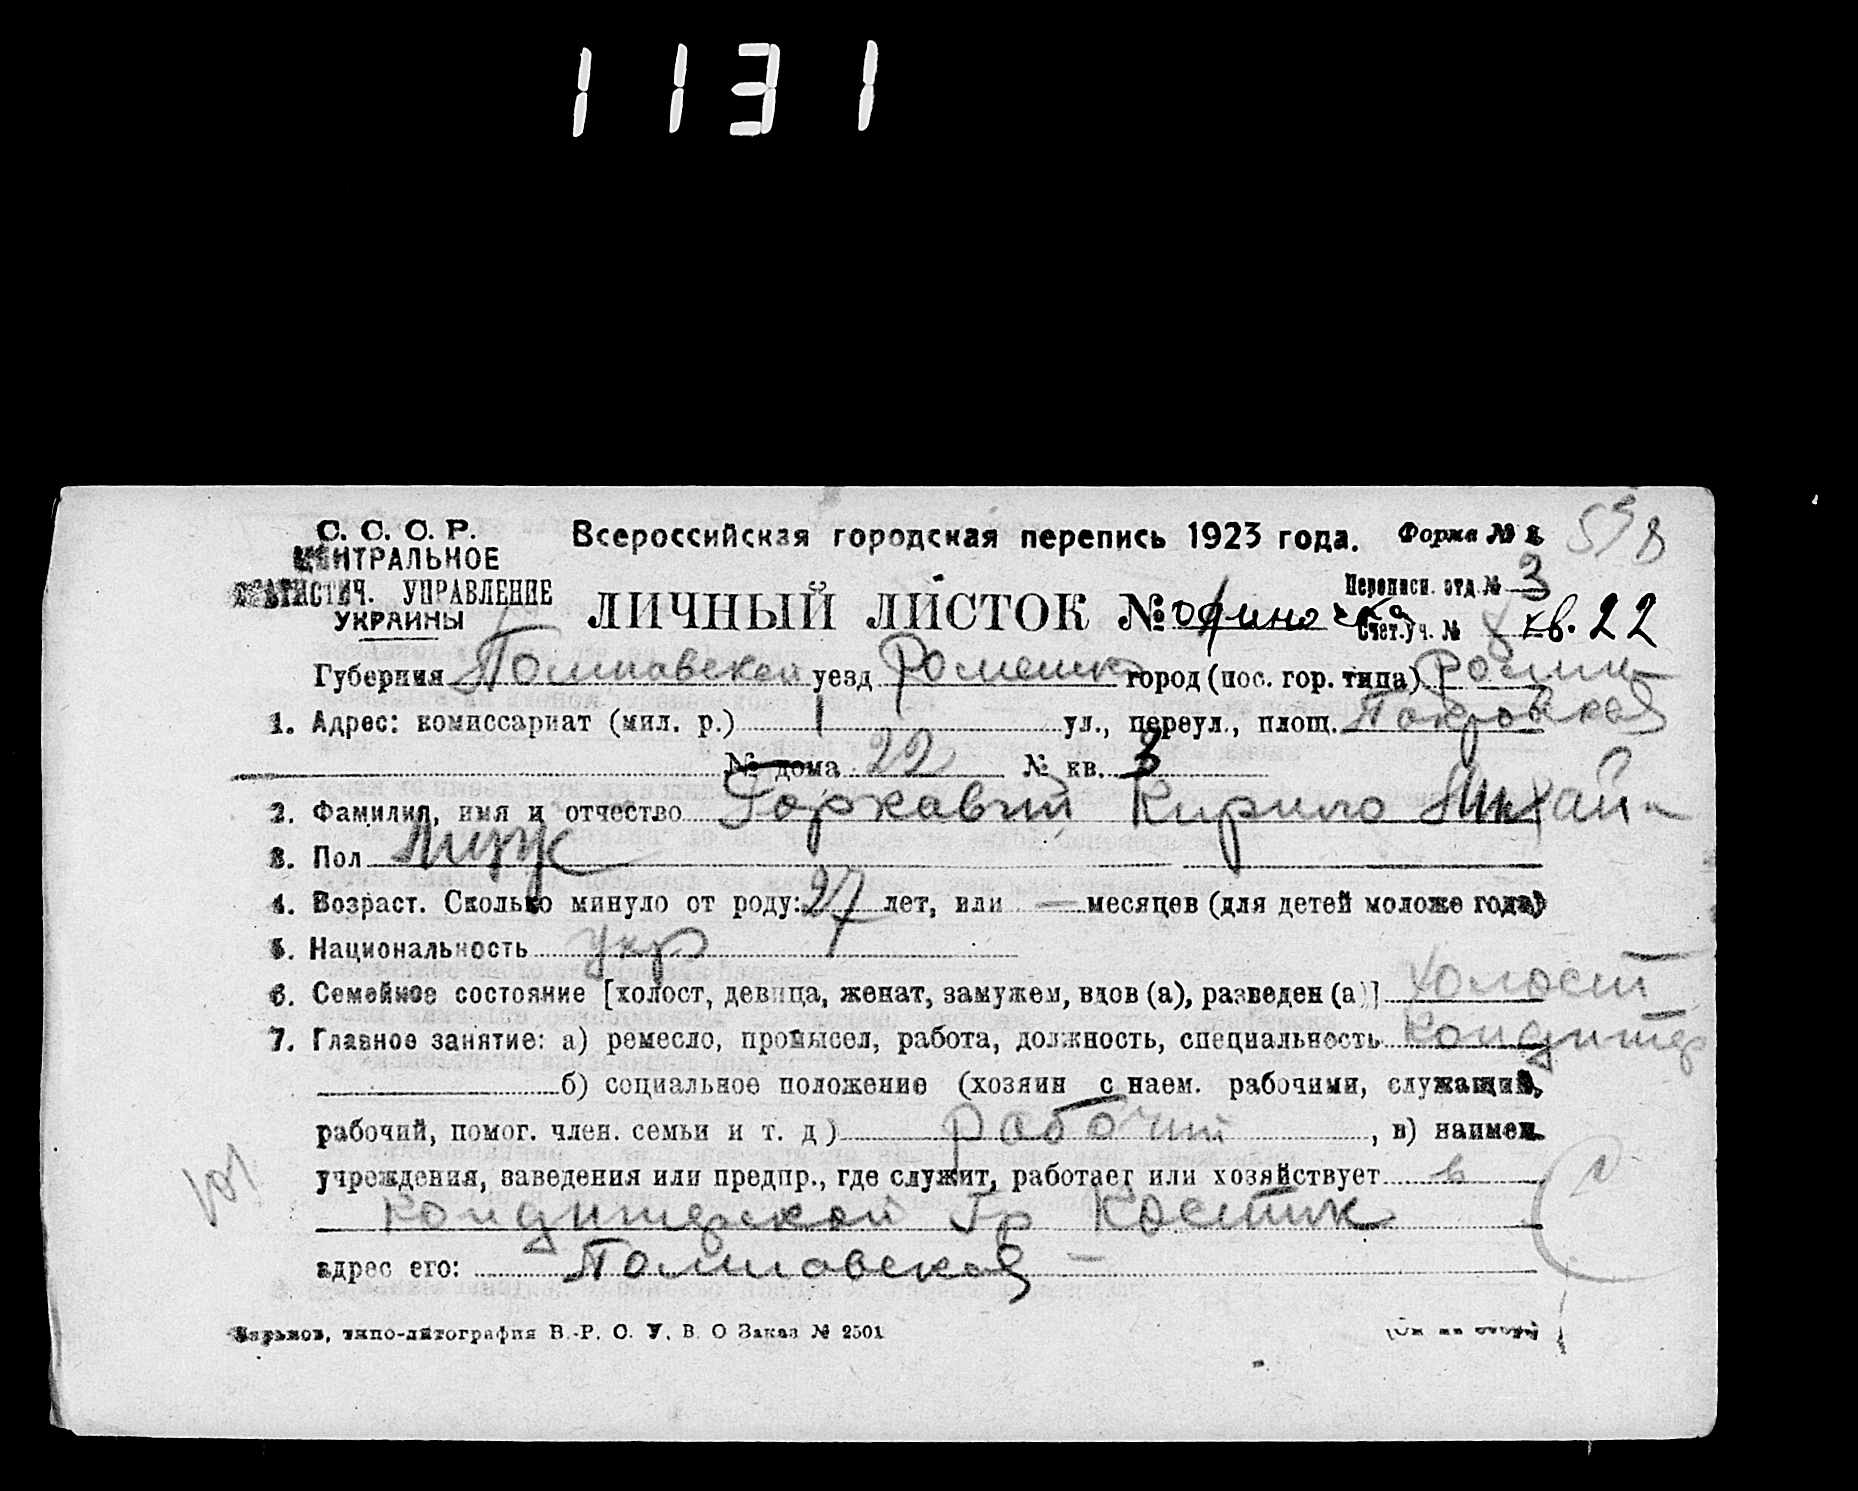 1131
С. С. С. Р.
ЦЕНТРАЛЬНОЕ
СТАТИСТИЧ. УПРАВЛЕНИЕ
УКРАИНЫ
Всероссийская городская перепись 1923 года.
Форма № 1
ЛИЧНЫЙ ЛИСТОК № одиночка
Переписн. отд. № 3
Счет. уч. № кв. 22
Губерния Полтавской уезд Роменск город (пос. гор. типа) Ромны
1. Адрес: комиссариат (мил. р.) 1 ул., переул., площ. Покровская
№ дома 22 № кв. 3
2. Фамилия, имя и отчество Горкавый Кирило Михай
3. Пол Муж
4. Возраст. Сколько минуло от роду: 27 лет, или — месяцев (для детей моложе года)
5. Национальность укр
6. Семейное состояние [холост, девица, женат, замужем, вдов (а), разведен (а)] холост
7. Главное занятие: а) ремесло, промысел, работа, должность, специальность кондитер
б) социальное положение (хозяин с наем. рабочими, служащий,
рабочий, помог. член. семьи и т. д) рабочий, в) наимен.
учреждения, заведения или предпр., где служит, работает или хозяйствует в
кондитерской Гр Костик
адрес его: Полтавская —
Харьков, типо-литография В.-Р. С. У. В. О Заказ № 2501